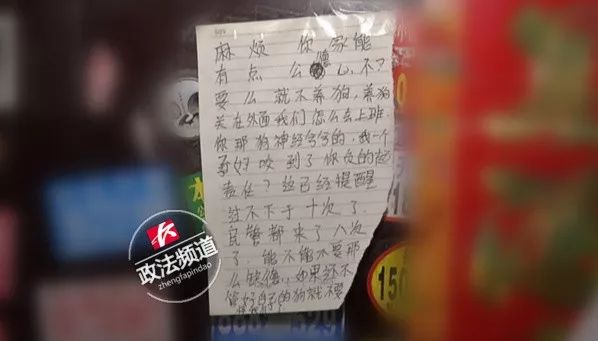 麻烦 你家能
有点 公德心,不了
要么就不养狗,养狗
关在外面我们怎么去上班.
你那狗神经兮兮的,我一个
孕妇咬到了你负的起
责任?我已经提醒
过不下于十次了.
民警都来了八次
了.能不能不要那
么缺德,如果还不
管好自己的狗就不要
政法频道
zhengfapindao
150